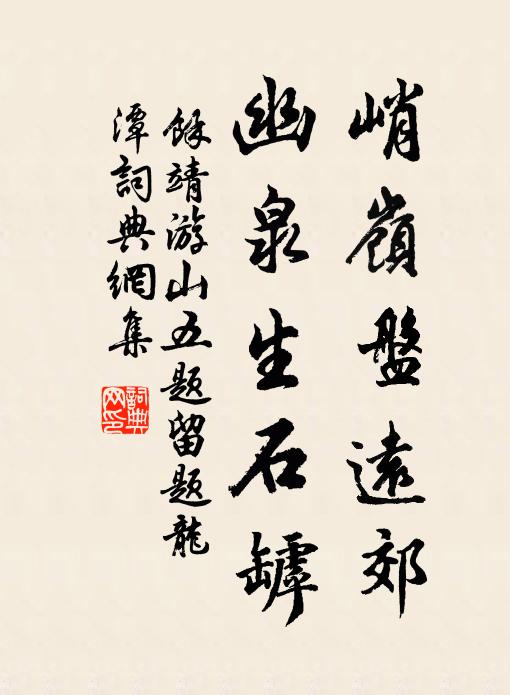 峭嶺盤遠郊
幽泉生石罅
餘靖游山五題留題龍
潭詞典網集
詞典网印